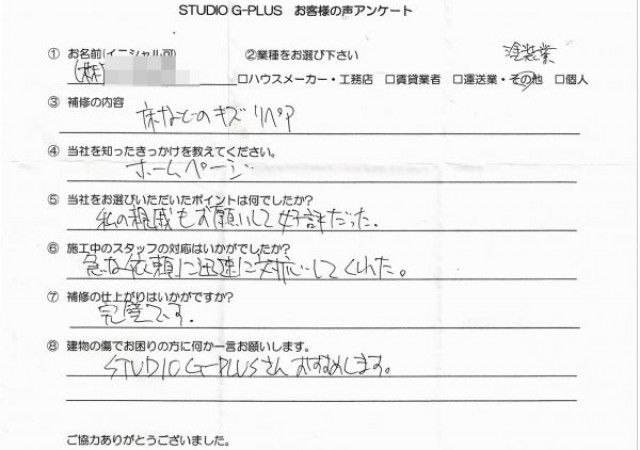 STUDIO G-PLUS お客様の声アンケート
① お名前(イニシャル可) ②業種をお選び下さい 塗装業
(株) □ハウスメーカー・工務店 □賃貸業者 □運送業・その他 □個人
③ 補修の内容
床などのキズ リペア
④ 当社を知ったきっかけを教えてください。
ホームページ
⑤ 当社をお選びいただいたポイントは何でしたか?
私の親戚もお願いして好評だった.
⑥ 施工中のスタッフの対応はいかがでしたか?
急な依頼に迅速に対応してくれた。
⑦ 補修の仕上がりはいかがですか?
完璧です.
⑧ 建物の傷でお困りの方に何か一言お願いします。
STUDIO G-PLUSさん おすすめします。
ご協力ありがとうございました。